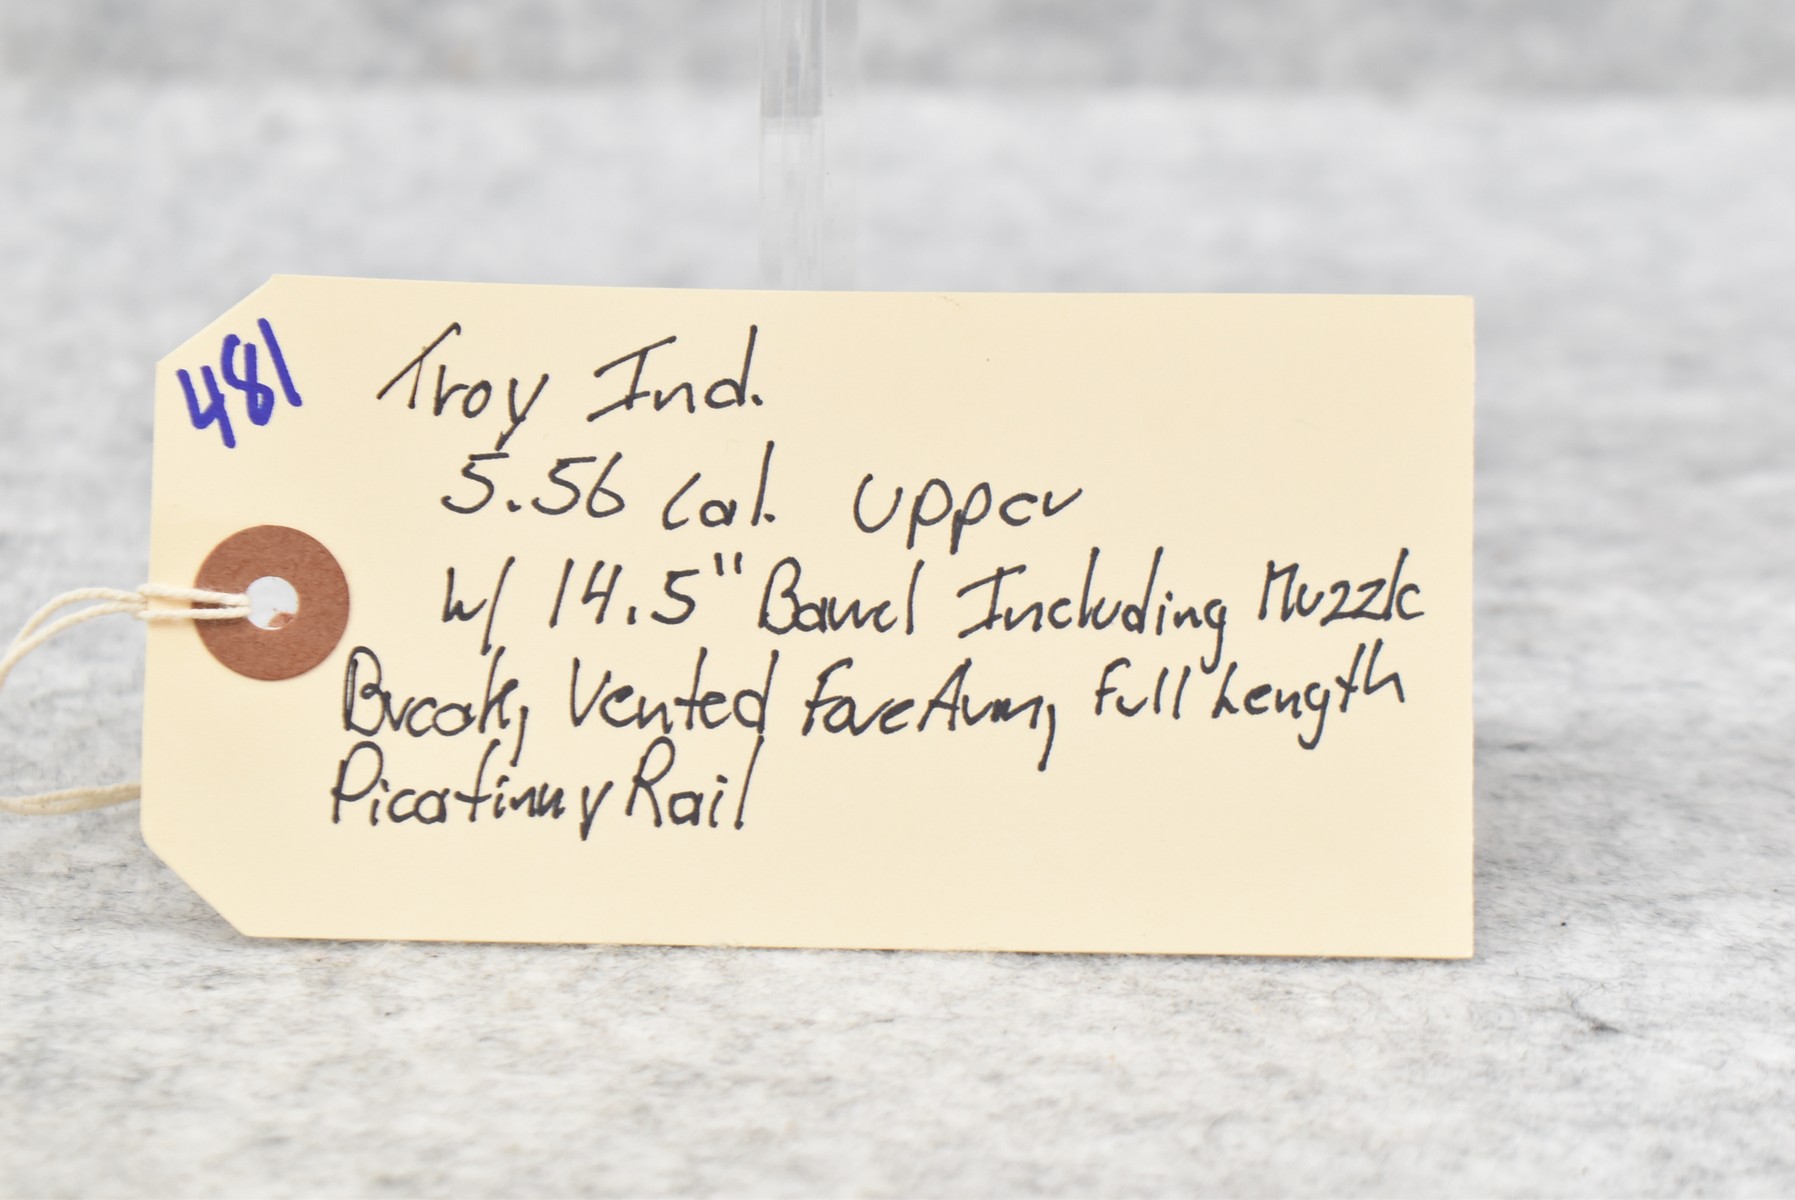 481
Troy Ind.
5.56 Cal. Upper
w/ 14.5" Barrel Including Muzzle
Break, Vented ForeArm, Full Length
Picatinny Rail